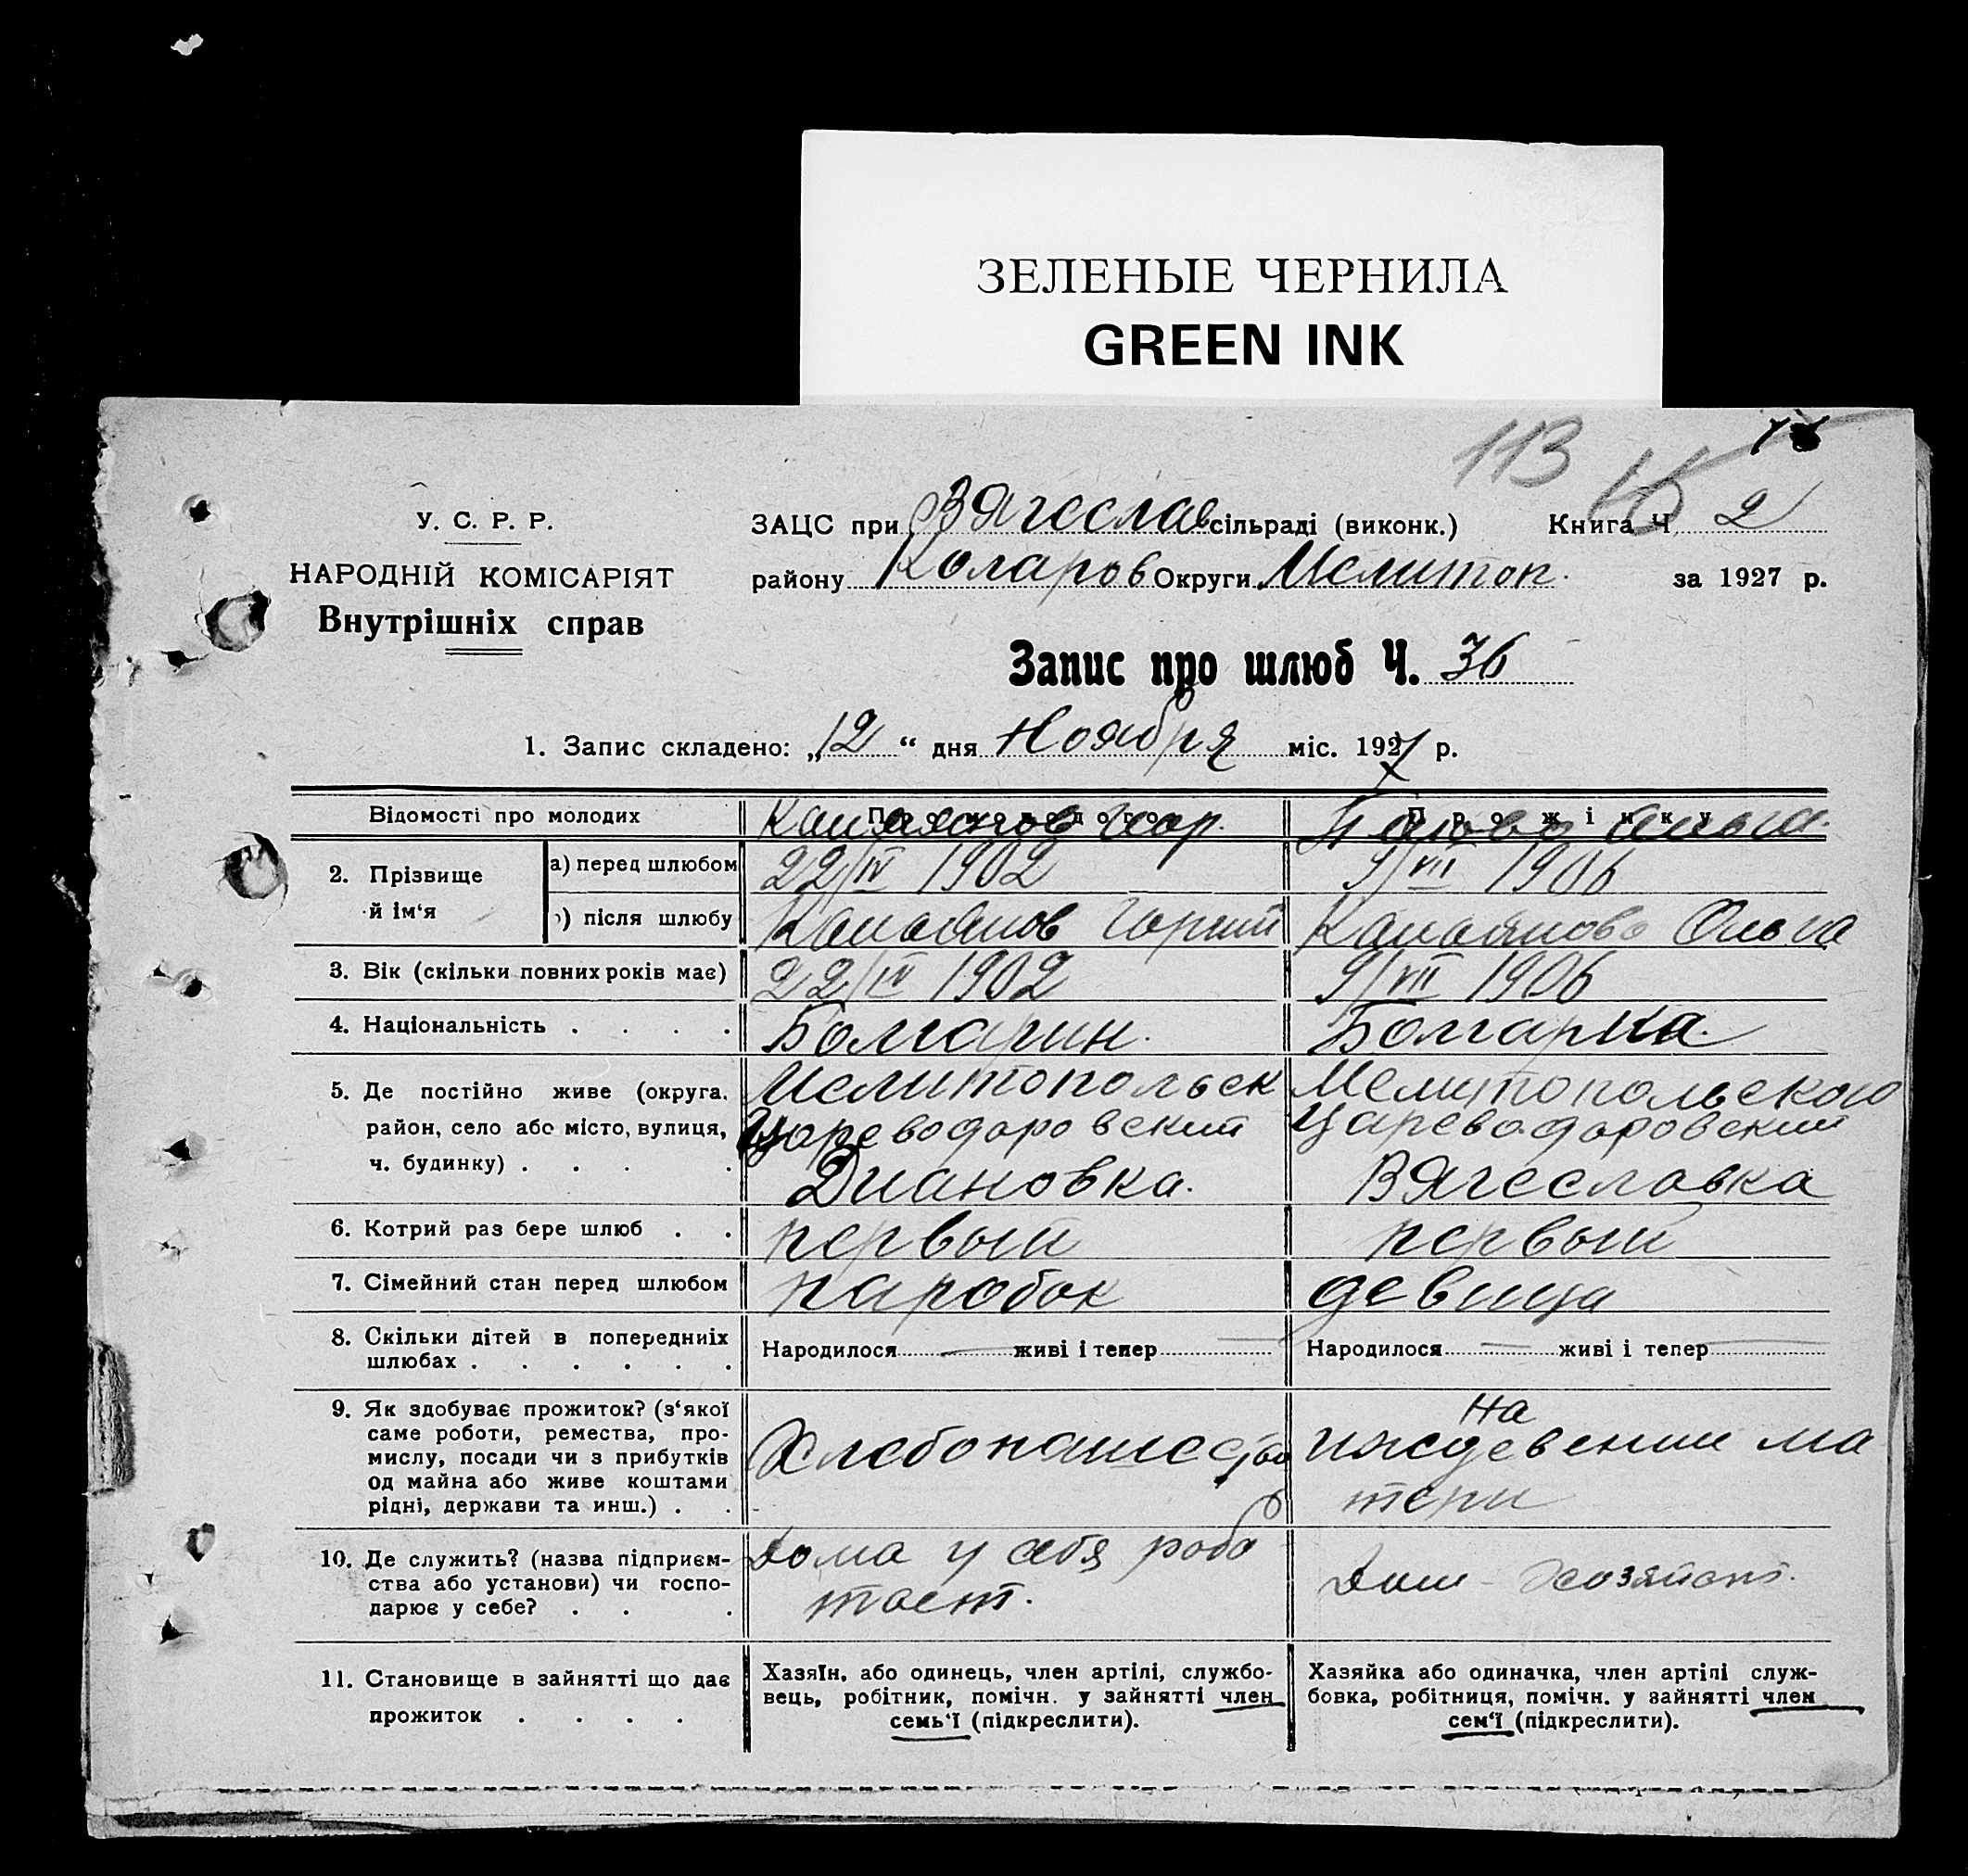 ЗЕЛЕНЫЕ ЧЕРНИЛА
GREEN INK
113 15
У. С. Р. Р.
НАРОДНІЙ КОМІСАРІЯТ
Внутрішніх справ
ЗАЦС при Вячеслав сільраді (виконк.) Книга Ч 2
району Коларов Округи Мелитоп. за 1927 р.
Запис про шлюб Ч. 36
1. Запис складено: „12“ дня Ноября міс. 1927 р.
Відомості про молодих
2. Прізвище й ім‘я
а) перед шлюбом 22/IV 1902 9/VII 1906
б) після шлюбу Ольга
3. Вік (скільки повних років має) 22/IV 1902 9/VII 1906
4. Національність . . . . Болгарин. Болгарка.
5. Де постійно живе (округа,
район, село або місто, вулиця,
ч. будинку) . . . .
Мелитопольск
Цареводаровский
Диановка.
Мелитопольского
Цареводаровский
Вячеславка
6. Котрий раз бере шлюб . . первый первый
7. Сімейний стан перед шлюбом паробок девица
8. Скільки дітей в попередниіх
шлюбах . . . . . .
Народилося — живі і тепер —
Народилося — живі і тепер —
9. Як здобуває прожиток? (з‘якої
саме роботи, ремества, про-
мислу, посади чи з прибутків
од майна або живе коштами
рідні, держави та инш.) . .
Хлебопашество
На
иждевении ма
тери
10. Де служить? (назва підприєм-
ства або установи) чи госпо-
дарює у себе? . . .
Дома у себя рабо
тает.
Дом-хозяйст.
11. Становище в зайнятті що дає
прожиток . . . .
Хазяїн, або одинець, член артілі, службо-
вець, робітник, помічн. у зайнятті член
семь‘ї (підкреслити).
Хазяйка або одиначка, член артілі служ-
бовка, робітниця, помічн. у зайнятті член
сем‘ї (підкреслити).